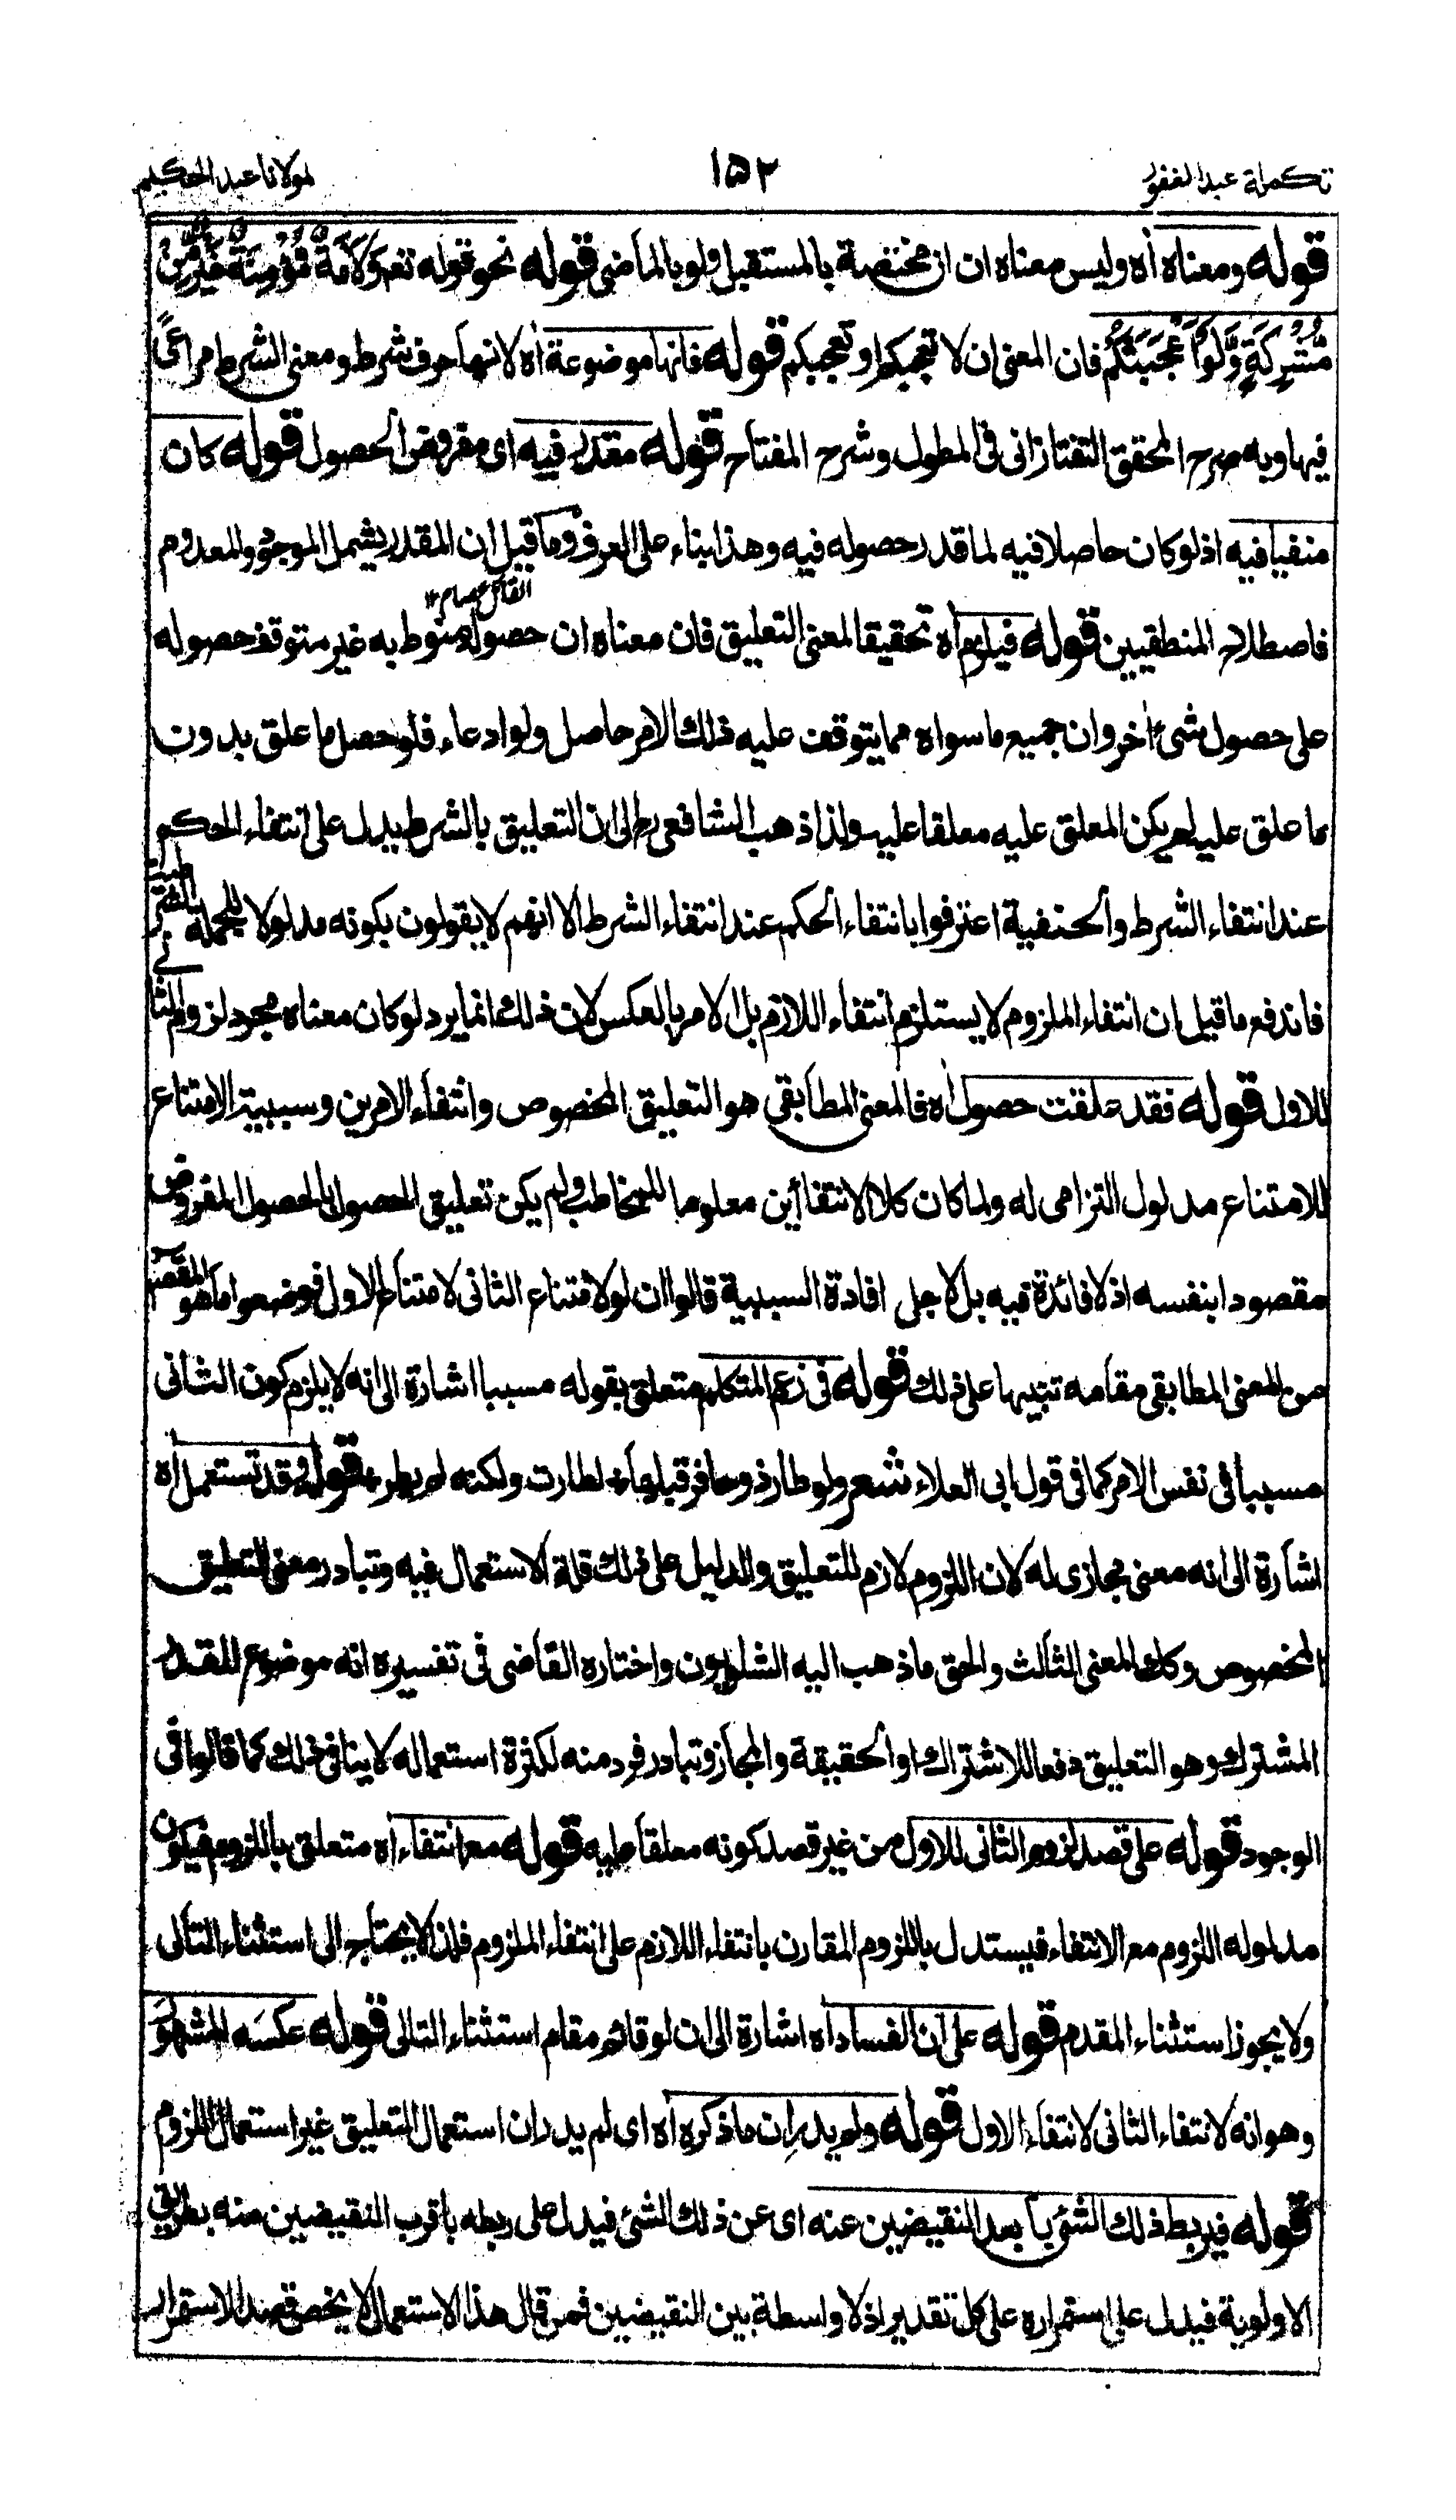 تكملة عبد الغفور
١٥٢
لمولانا عبد الحكيم
قوله ومعناه اه وليس معناه ان ان مختصة بالمستقبل ولو بالماضى قوله نحو قوله تعم وَلَاَمَةٌ مُؤْمِنَةٌ خَيْرٌ مِّنْ
مُّشْرِكَةٍ وَّلَوْ اَعْجَبَتْكُمْ فان المعنى ان لا تعجبكم او تعجبكم قوله فانها موضوعة اه لانها حرف شرط ومعنى الشرط مراعًى
فيها وبه صرح المحقق التفتازانى فى المطول وشرح المفتاح قوله مقدر فيه اى مفروض الحصول قوله كان
منفيا فيه اذ لو كان حاصلا فيه لما قدر حصوله فيه وهذا بناء على العرف وما قيل ان المقدر يشمل الموجود والمعدوم
القائل عصام ١٢
فاصطلاح المنطقيين قوله فيلزم اه تحقيقا لمعنى التعليق فان معناه ان حصوله منوط به غير متوقف حصوله
على حصول شئ اخر وان جميع ما سواه مما يتوقف عليه ذلك الامر حاصل ولو ادعاء فلو حصل ما علق بدون
ما علق عليه لم يكن المعلق عليه معلقا عليه ولذا ذهب الشافعى رح الى ان التعليق بالشرط يدل على انتفاء الحكم
عند انتفاء الشرط والحنفية اعترفوا بانتفاء الحكم عند انتفاء الشرط الا انهم لا يقولون بكونه مدلولا للجملة الشرطية
فاندفع ما قيل ان انتفاء الملزوم لا يستلزم انتفاء اللازم بل الامر بالعكس لان ذلك انما يرد لو كان معناه مجرد لزوم الثانى
للاول قوله فقد علقت حصول اه فالمعنى المطابقى هو التعليق المخصوص وانتفاء الامرين وسببية الامتناع
للامتناع مدلول التزامى له ولما كان كلا الانتفائين معلوما للمخاطب ولم يكن تعليق الحصول بالحصول المفروض
مقصودا بنفسه اذ لا فائدة فيه بل لاجل افادة السببية قالوا ان لو لامتناع الثانى لامتناع الاول فوضعوا ما هو المقصود
من المعنى المطابقى مقامه تنبيها على ذلك قوله فى زعم المتكلم متعلق بقوله مسببا اشارة الى انه لا يلزم كون الثانى
مسببا فى نفس الامر كما فى قول ابى العلاء شعر ولو طار ذو حافر قبلها ؞ لطارت ولكنه لم يطر ؞ قوله وقد تستعمل اه
اشارة الى انه معنى مجازى له لان اللزوم لازم للتعليق والدليل على ذلك قلة الاستعمال فيه وتبادر معنى التعليق
المخصوص وكذا المعنى الثالث والحق ما ذهب اليه الشلوبون واختاره القاضى فى تفسيره انه موضوع للقدر
المشترك وهو التعليق دفعا للاشتراك او الحقيقة والمجاز وتبادر فرد منه لكثرة استعماله لا ينافى ذلك كما قالوا فى
الوجود قوله على قصد لزوم الثانى للاول من غير قصد كونه معلقا عليه قوله مع انتفاء اه متعلق باللزوم فيكون
مدلوله اللزوم مع الانتفاء فيستدل باللزوم المقارن بانتفاء اللازم على انتفاء الملزوم فلذا لا يحتاج الى استثناء التالى
ولا يجوز استثناء المقدم قوله على ان الفساد اه اشارة الى ان لو قائم مقام استثناء التالى قوله عكسه المشهور
وهو انه لانتفاء الثانى لانتفاء الاول قوله ولم يدر ان ما ذكره اه اى لم يدر ان استعمال التعليق غير استعمال اللزوم
قوله فيربط ذلك الشئ بابعد النقيضين عنه اى عن ذلك الشئ فيدل على ربطه باقرب النقيضين منه بطريق
الاولوية فيدل على استمراره على كل تقدير اذ لا واسطة بين النقيضين فمن قال هذا الاستعمال لا يخص قصد الاستمرار